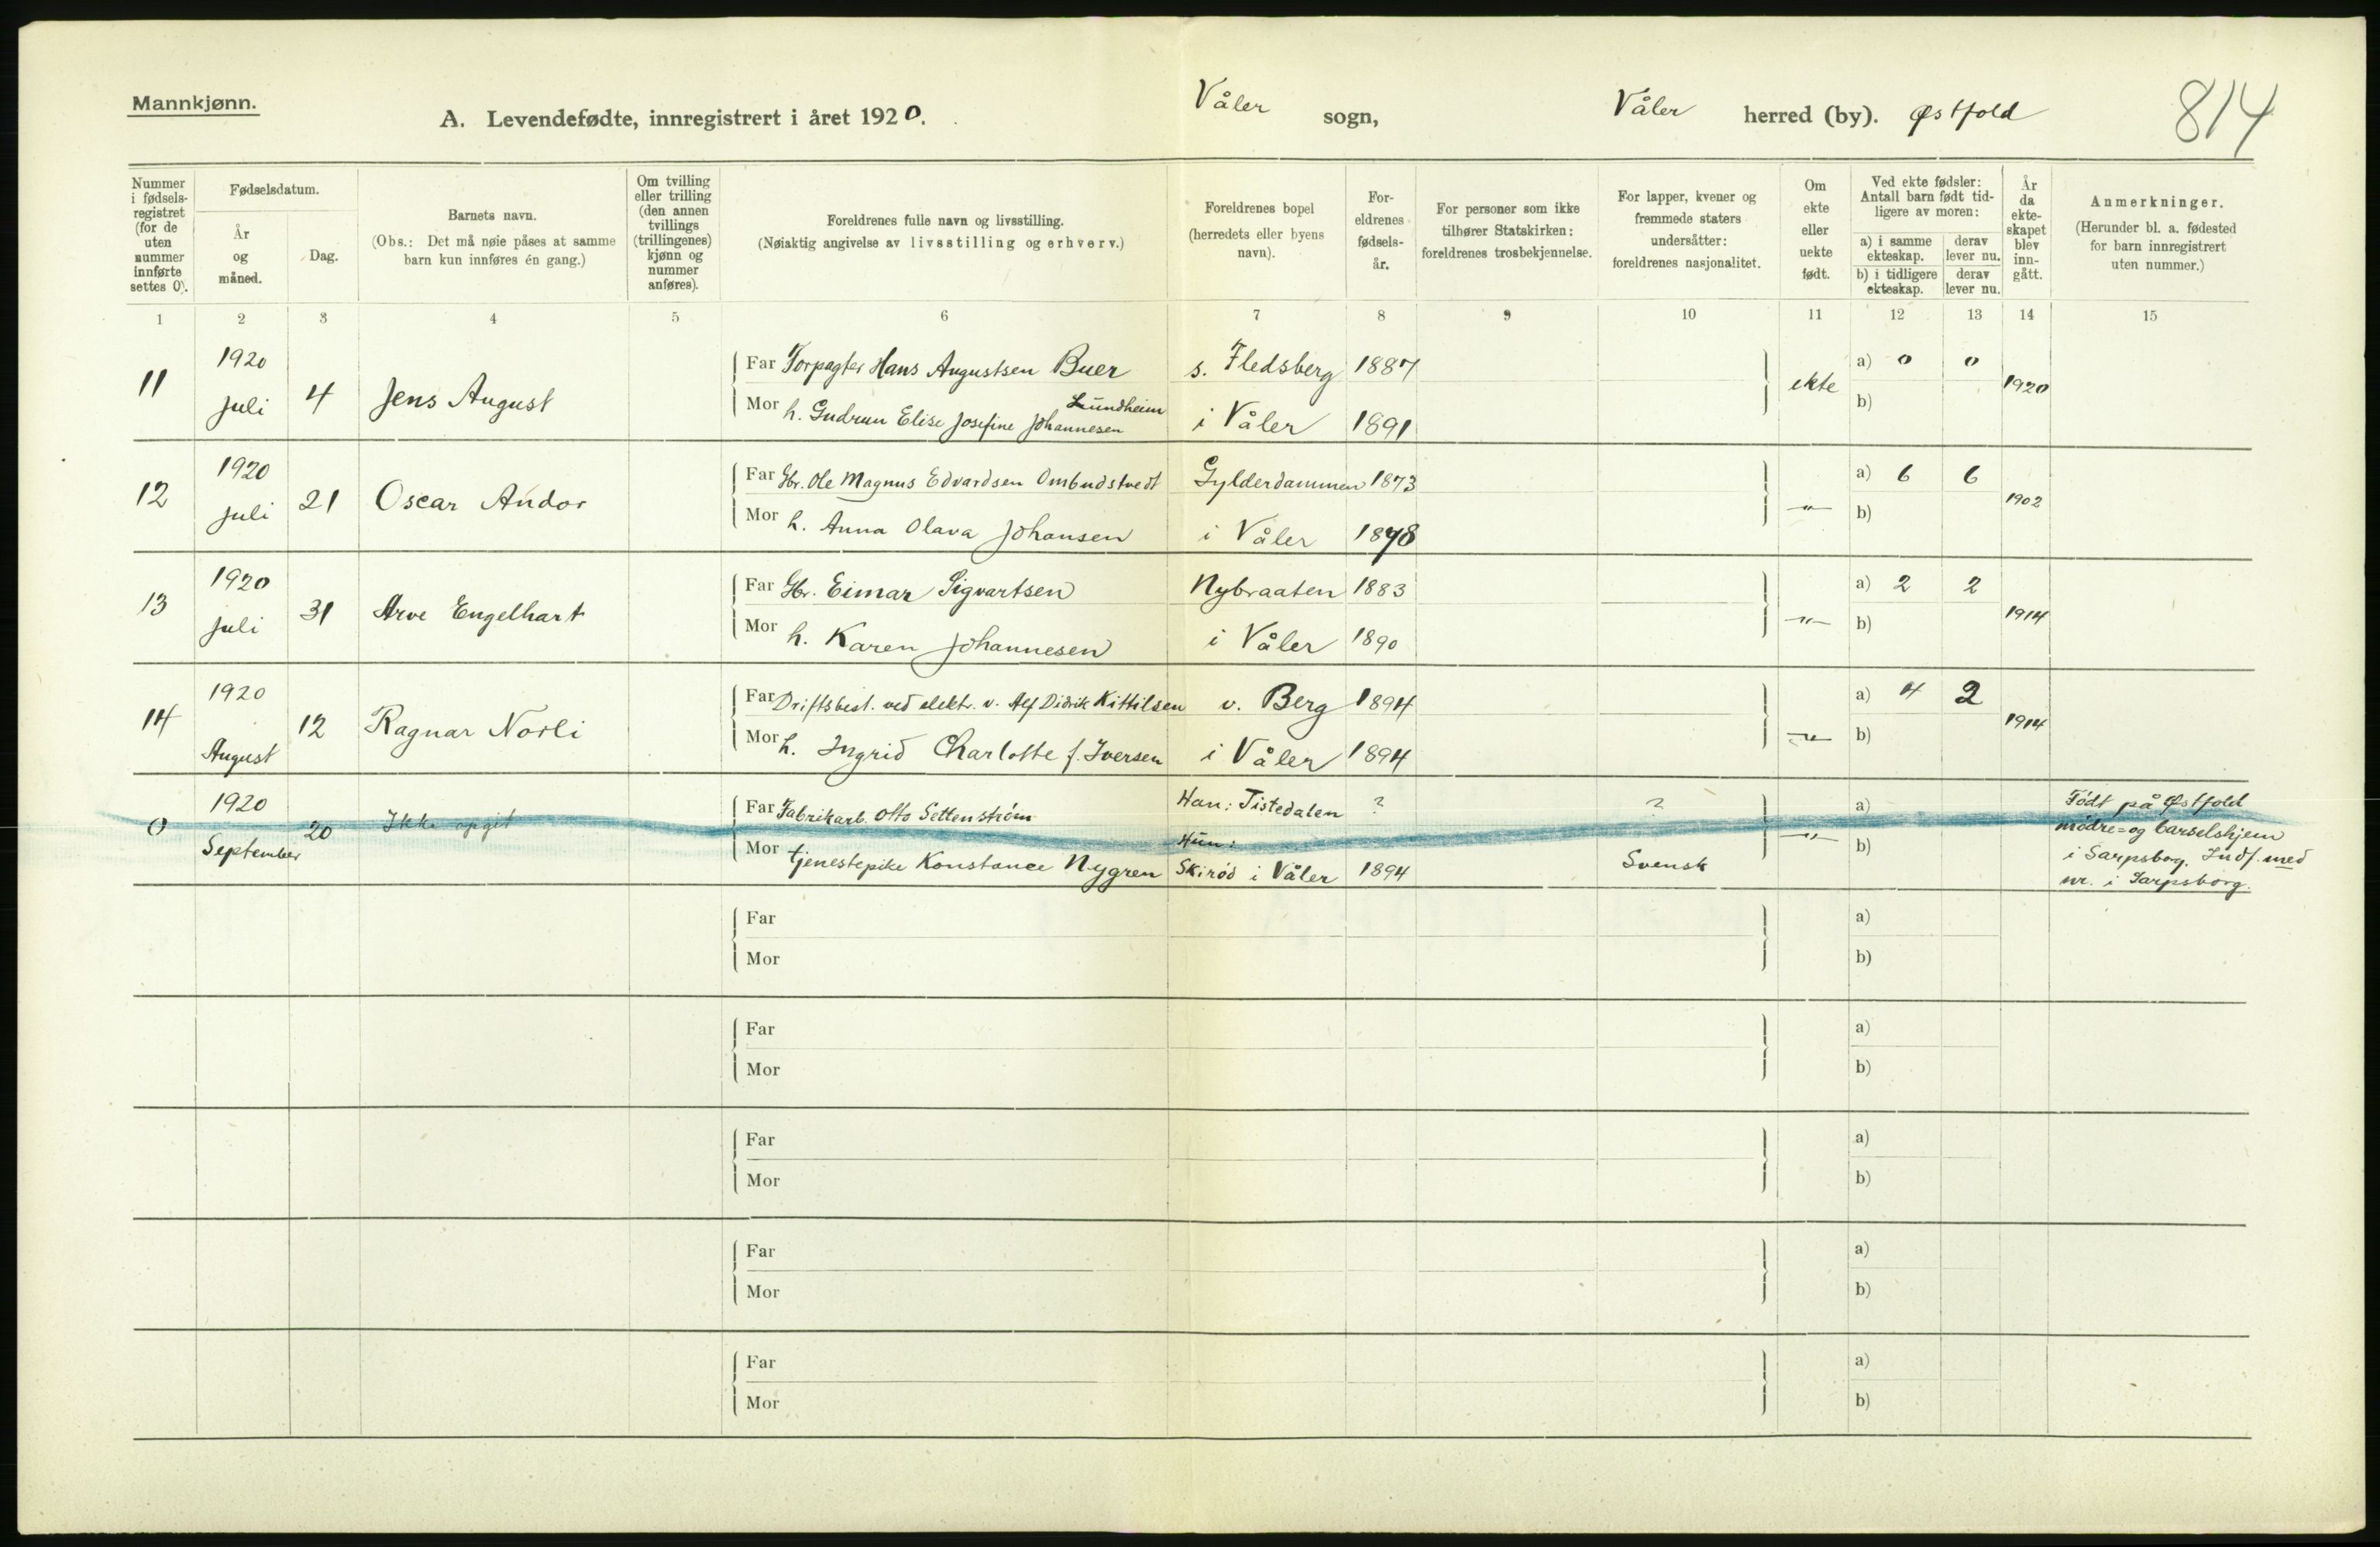 Mannkjønn.
A. Levendefødte, innregistrert i året 1920.
Våler sogn, Våler herred (by). Østfold
814
Nummer i fødselsregistret (for de uten nummer innførte settes 0).
Fødselsdatum.
År og måned.
Dag.
Barnets navn.
(Obs.: Det må nøie påses at samme barn kun innføres én gang.)
Om tvilling eller trilling (den annen tvillings (trillingenes) kjønn og nummer anføres).
Foreldrenes fulle navn og livsstilling.
(Nøiaktig angivelse av livsstilling og erhverv.)
Foreldrenes bopel (herredets eller byens navn).
Foreldrenes fødselsår.
For personer som ikke tilhører Statskirken: foreldrenes trosbekjennelse.
For lapper, kvener og fremmede staters undersåtter: foreldrenes nasjonalitet.
Om ekte eller uekte født.
Ved ekte fødsler: Antall barn født tidligere av moren:
a) i samme ekteskap. derav lever nu.
b) i tidligere ekteskap. derav lever nu.
År da ekteskapet blev inngått.
Anmerkninger.
(Herunder bl. a. fødested for barn innregistrert uten nummer.)
1 2 3 4 5 6 7 8 9 10 11 12 13 14 15
11 1920 juli 4 Jens August
Far Forpagter Hans Augustsen Buer s. Fledsberg 1887 ekte a) 0 0 1920
Mor h. Gudrun Elise Josefine Johannesen Lundheim i Våler 1891 b)
12 1920 juli 21 Oscar Andor
Far Gbr. Ole Magnus Edvardsen Ombudstvedt Gylderdammen 1873 -"- a) 6 6 1902
Mor h. Anna Olava Johansen i Våler 1878 b)
13 1920 juli 31 Arve Engelhart
Far Gbr. Eimar Sigvartsen Nybraaten 1883 -"- a) 2 2 1914
Mor h. Karen Johannesen i Våler 1890 b)
14 1920 August 12 Ragnar Norli
Far Driftsbest. ved elektr. v. Alf Didrik Kittilsen v. Berg 1894 -"- a) 4 2 1914
Mor h. Ingrid Charlotte f. Iversen i Våler 1894 b)
0 1920 September 20 Ikke opgit
Far Fabrikarb. Otto Settenstrøm Han: Tistedalen ? ? -"- a)
Mor tjenestepike Konstance Nygren Hun: Skirød i Våler 1894 Svensk b)
Født på Østfold
mødre= og barselshjem
i Sarpsborg. Indf. med
nr. i Sarpsborg.
Far a)
Mor b)
Far a)
Mor b)
Far a)
Mor b)
Far a)
Mor b)
Far a)
Mor b)